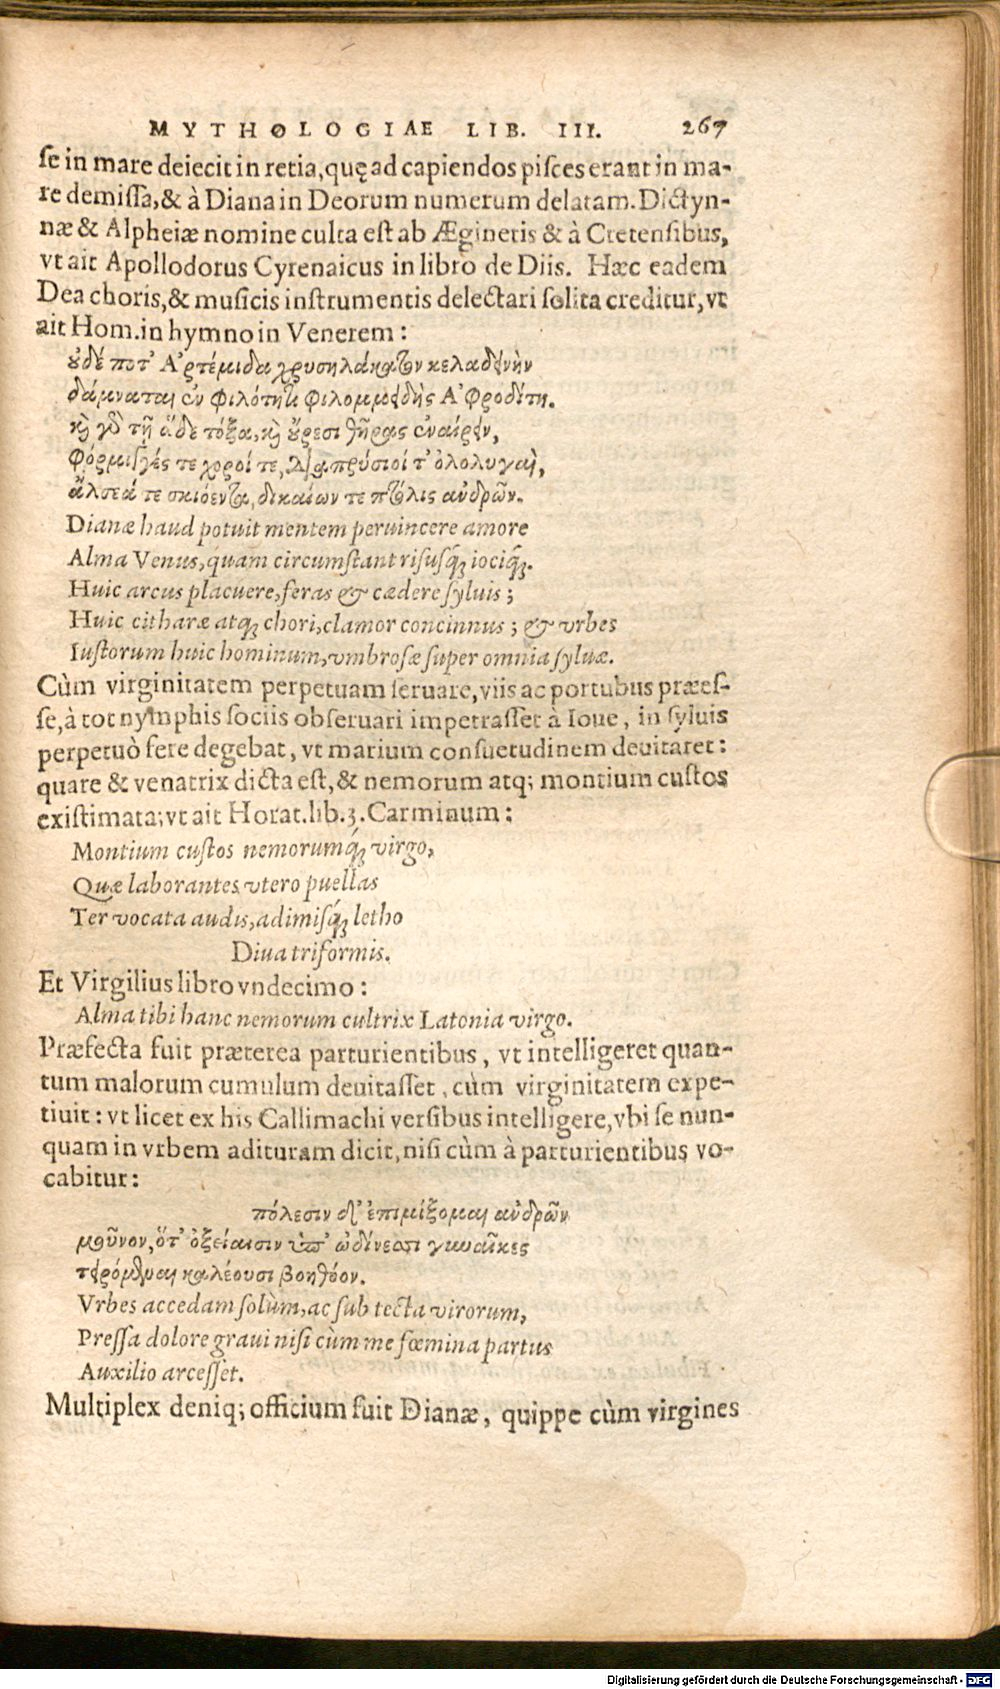 MYTHOLOGIAE LIB. III. 267
se in mare deiecit in retia, quę ad capiendos pisces erant in ma-
re demissa, & à Diana in Deorum numerum delatam. Dictyn-
næ & Alpheiæ nomine culta est ab Æginetis & à Cretensibus,
vt ait Apollodorus Cyrenaicus in libro de Diis. Hæc eadem
Dea choris, & musicis instrumentis delectari solita creditur, vt
ait Hom. in hymno in Venerem:
οὐδέ ποτ' Ἀρτέμιδα χρυσηλάκατον κελαδεινὴν
δάμναται ἐν φιλότητι φιλομμειδὴς Ἀφροδίτη.
καὶ γὰρ τῇ ἅδε τόξα, καὶ οὔρεσι θῆρας ἐναίρειν,
φόρμιγγές τε χοροί τε, διαπρύσιοί τ' ὀλολυγαὶ,
ἄλσεά τε σκιόεντα, δικαίων τε πτόλις ἀνδρῶν.
Dianæ haud potuit mentem peruincere amore
Alma Venus, quam circumstant risusq́; iociq́;.
Huic arcus placuere, feras & cædere syluis;
Huic citharæ atq; chori, clamor concinnus; & vrbes
Iustorum huic hominum, vmbrosæ super omnia syluæ.
Cùm virginitatem perpetuam seruare, viis ac portubus præes-
se, à tot nymphis sociis obseruari impetrasset à Ioue, in syluis
perpetuò fere degebat, vt marium consuetudinem deuitaret:
quare & venatrix dicta est, & nemorum atq; montium custos
existimata; vt ait Horat. lib. 3. Carminum:
Montium custos nemorumq́; virgo,
Quæ laborantes vtero puellas
Ter vocata audis, adimisq́; letho
Diua triformis.
Et Virgilius libro vndecimo:
Alma tibi hanc nemorum cultrix Latonia virgo.
Præfecta fuit præterea parturientibus, vt intelligeret quan-
tum malorum cumulum deuitasset, cùm virginitatem expe-
tiuit: vt licet ex his Callimachi versibus intelligere, vbi se nun-
quam in vrbem adituram dicit, nisi cùm à parturientibus vo-
cabitur:
πόλεσιν δ' ἐπιμίξομαι ἀνδρῶν
μοῦνον, ὅτ' ὀξείαισιν ὑπ' ὠδίνεσσι γυναῖκες
τειρόμεναι καλέουσι βοηθόον.
Vrbes accedam solùm, ac sub tecta virorum,
Pressa dolore graui nisi cùm me fœmina partus
Auxilio arcesset.
Multiplex deniq; officium fuit Dianæ, quippe cùm virgines
Digitalisierung gefördert durch die Deutsche Forschungsgemeinschaft - DFG